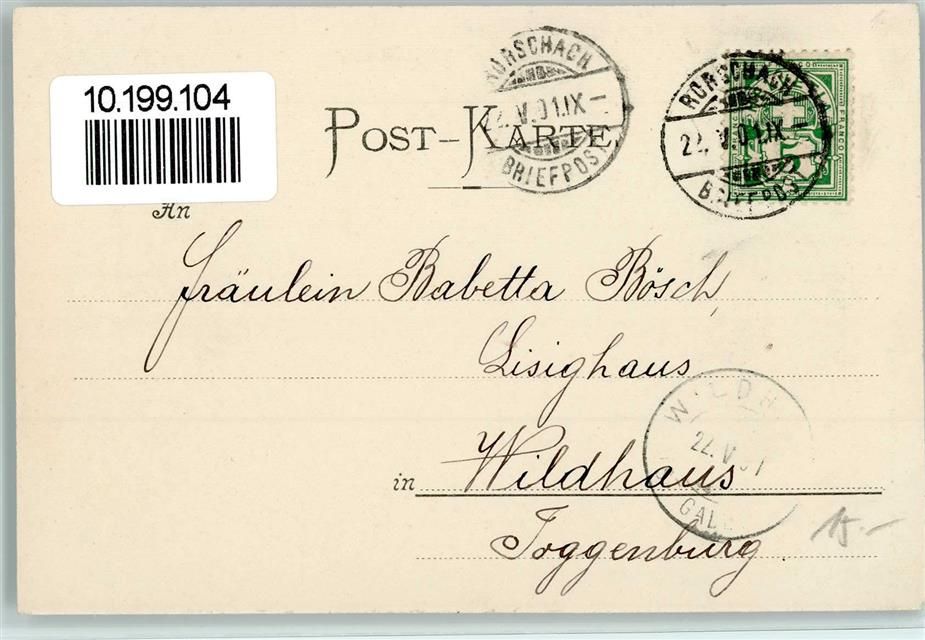 10.199.104
POST-KARTE.
RORSCHACH
22.V.01.IX-
BRIEFPOST
RORSCHACH
22.V.01.IX-
BRIEFPOST
FRANCO
An
Fräulein Babetta Bösch,
Lisighaus
in Wildhaus
Toggenburg.
WILDH
22.V.01
GAL
15.-